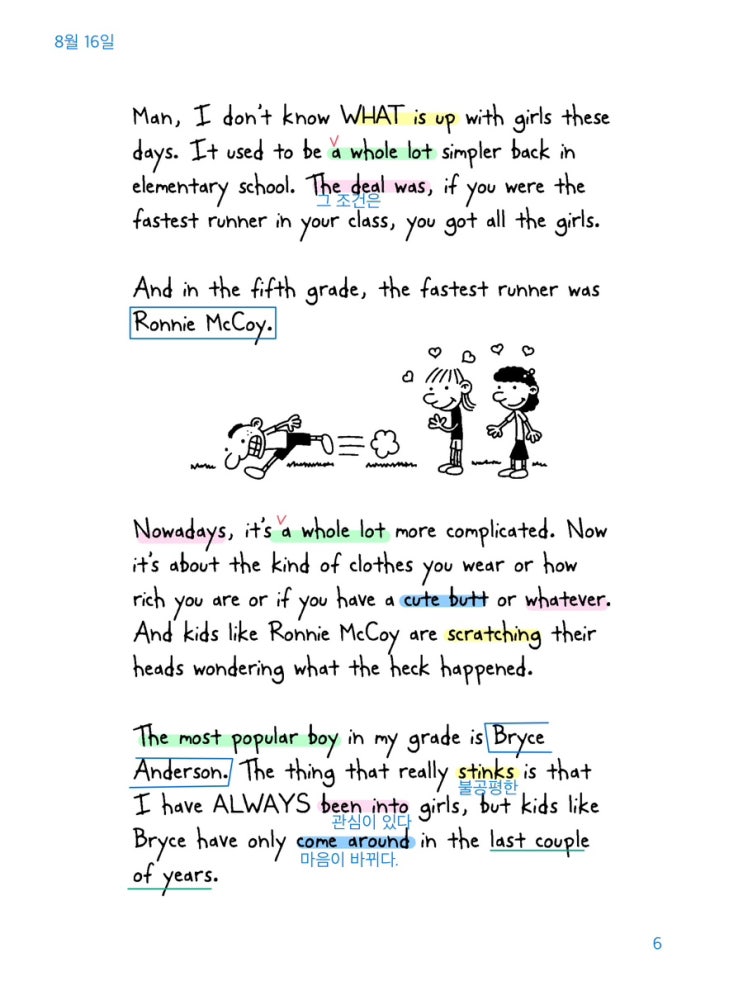 8월 16일
Man, I don't know WHAT is up with girls these
days. It used to be a whole lot simpler back in
elementary school. The deal was, if you were the
그 조건은
fastest runner in your class, you got all the girls.
And in the fifth grade, the fastest runner was
Ronnie McCoy.
Nowadays, it's a whole lot more complicated. Now
it's about the kind of clothes you wear or how
rich you are or if you have a cute butt or whatever.
And kids like Ronnie McCoy are scratching their
heads wondering what the heck happened.
The most popular boy in my grade is Bryce
Anderson. The thing that really stinks is that
불공평한
I have ALWAYS been into girls, but kids like
관심이 있다
Bryce have only come around in the last couple
마음이 바뀌다.
of years.
6